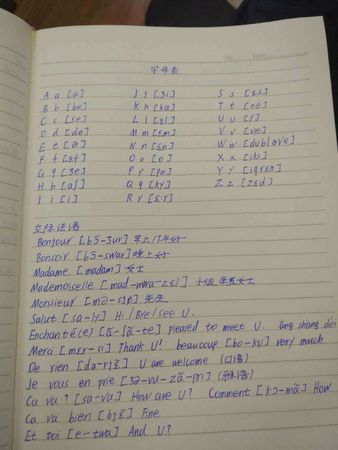 字母表
A a [a] J j [ʒi] S s [ɛs]
B b [be] K k [ka] T t [te]
C c [se] L l [ɛl] U u [y]
D d [de] M m [ɛm] V v [ve]
E e [ə] N n [ɛn] W w [dubləve]
F f [ɛf] O o [o] X x [iks]
G g [ʒe] P p [pe] Y y [igrɛk]
H h [aʃ] Q q [ky] Z z [zɛd]
I i [i] R r [ɛ:r]
交际法语
Bonjour [bɔ̃-ʒur] 早上/下午好
Bonsoir [bɔ̃-swar] 晚上好
Madame [madam] 女士
Mademoiselle [mad-mwa-zɛl] 小姐
Monsieur [mə-sjø] 先生
Salut [sa-ly] Hi/Bye/see U.
Enchanté(e) [ɑ̃-ʃɑ̃-te] pleased to meet U. āng shāng dēi
Merci [mɛr-si] Thank U! beaucoup [bo-ku] very much
De rien [də-rjɛ̃] U are welcome (口语)
Je vous en prie [ʒə-vu-zɑ̃-pri]
Ca va? [sa-va] How are U? Comment [kɔ-mɑ̃] How
Ca va bien [bjɛ̃] Fine
Et toi [e-twa] And U?